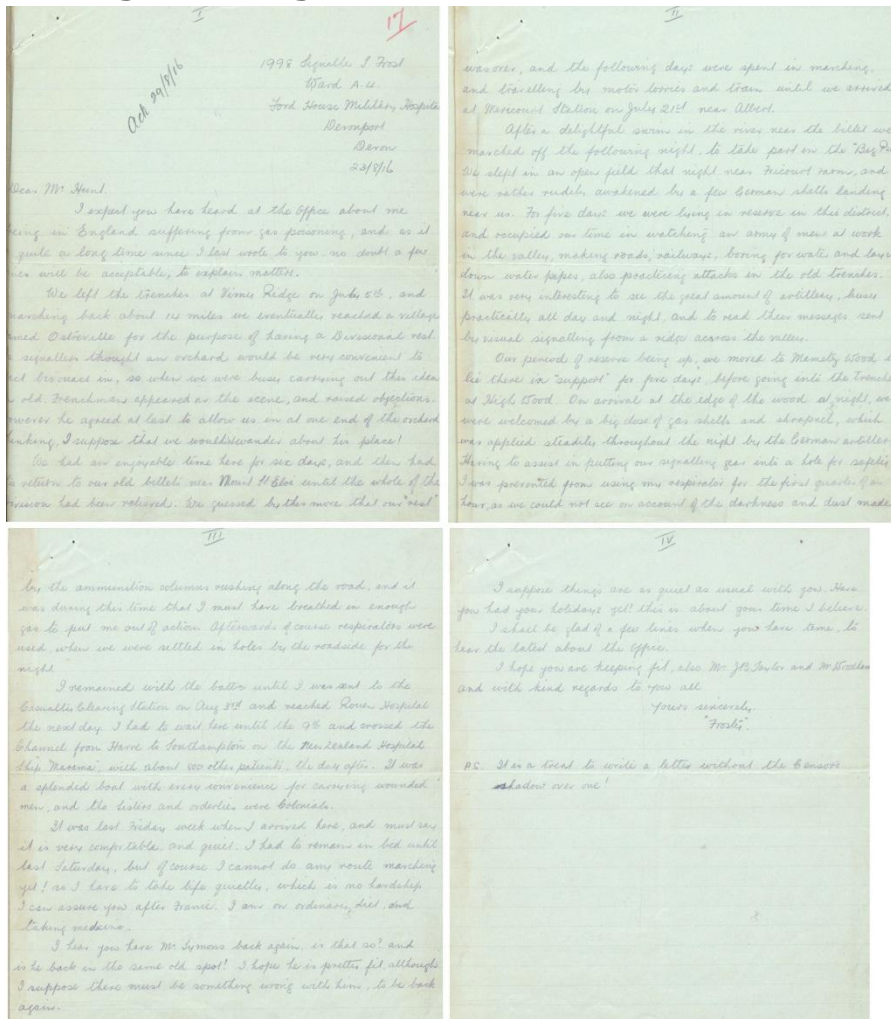 I
17
Ack 29/8/16
1998 Signaller S. Frost
Ward A.4.
Ford House Military Hospital
Devonport
Devon
23/8/16
Dear Mr Hunt.
I expect you have heard at the Office about me
being in England suffering from gas poisoning, and as it
quite a long time since I last wrote to you no doubt a few
lines will be acceptable, to explain matters.
We left the trenches at Vimy Ridge on July 5th, and
marching back about 14 miles we eventually reached a village
named Ostreville for the purpose of having a Divisional rest.
signallers thought an orchard would be very convenient to
bivouac in, so when we were busy carrying out this idea
old Frenchman appeared on the scene, and raised objections.
However he agreed at last to allow us in at one end of the orchard
thinking, I suppose that we would wander about his place!
We had an enjoyable time here for six days, and then had
to return to our old billets near Mount St Eloi until the whole of the
Division had been relieved. We guessed by this move that our "rest"
II
was over, and the following days were spent in marching,
and travelling by motor lorries and train until we arrived
at Mericourt Station on July 21st near Albert.
After a delightful swim in the river near the billet we
marched off the following night, to take part on the "Big
We slept in an open field that night near Fricourt farm, and
were rather rudely awakened by a few German shells landing
near us. For five days we were lying in reserve in this district,
and occupied our time in watching an army of men at work
in the valley, making roads, railways, boring for water and
down water pipes, also practicing attacks in the old trenches.
It was very interesting to see the great amount of artillery, busy
practically all day and night, and to read their messages sent
by visual signalling from a ridge across the valley.
Our period of reserve being up, we moved to Mametz Wood
lie there in "support" for five days, before going into the trenches
at High Wood. On arrival at the edge of the wood at night, we
were welcomed by a big dose of gas shells and shrapnel, which
was applied steadily throughout the night by the German artillery.
Having to assist in putting our signalling gear into a hole for safety
I was prevented from using my respirator for the first quarter of an
hour, as we could not see on account of the darkness and dust made
III
by the ammunition columns rushing along the road, and it
was during this time that I must have breathed in enough
gas to put me out of action. Afterwards of course respirators were
used, when we were settled in holes by the roadside for the
night
I remained with the battn until I was sent to the
Casualty Clearing Station on Aug 3rd and reached Rouen Hospital
the next day. I had to wait here until the 9th and crossed the
Channel from Havre to Southampton on the New Zealand Hospital
Ship "Marama", with about 500 other patients, the day after. It was
a splendid boat with every convenience for carrying wounded
men, and the Sisters and orderlies were Colonials.
It was last Friday week when I arrived here, and must say
it is very comfortable, and quiet. I had to remain in bed until
last Saturday, but of course I cannot do any route marching
yet! so I have to take life quietly, which is no hardship
I can assure you after France. I am on ordinary diet, and
taking medicine.
I hear you have Mr Symons back again, is that so? and
is he back in the same old spot! I hope he is pretty fit, although
I suppose there must be something wrong with him, to be back
again.
IV
I suppose things are as quiet as usual with you. Have
you had your holidays yet! this is about your time I believe.
I shall be glad of a few lines when you have time, to
hear the latest about the Office.
I hope you are keeping fit, also Mr J.B. Taylor and Mr
and with kind regards to you all
Yours sincerely
"Frosty".
P.S. It is a treat to write a letter without the Censors
shadow over one!